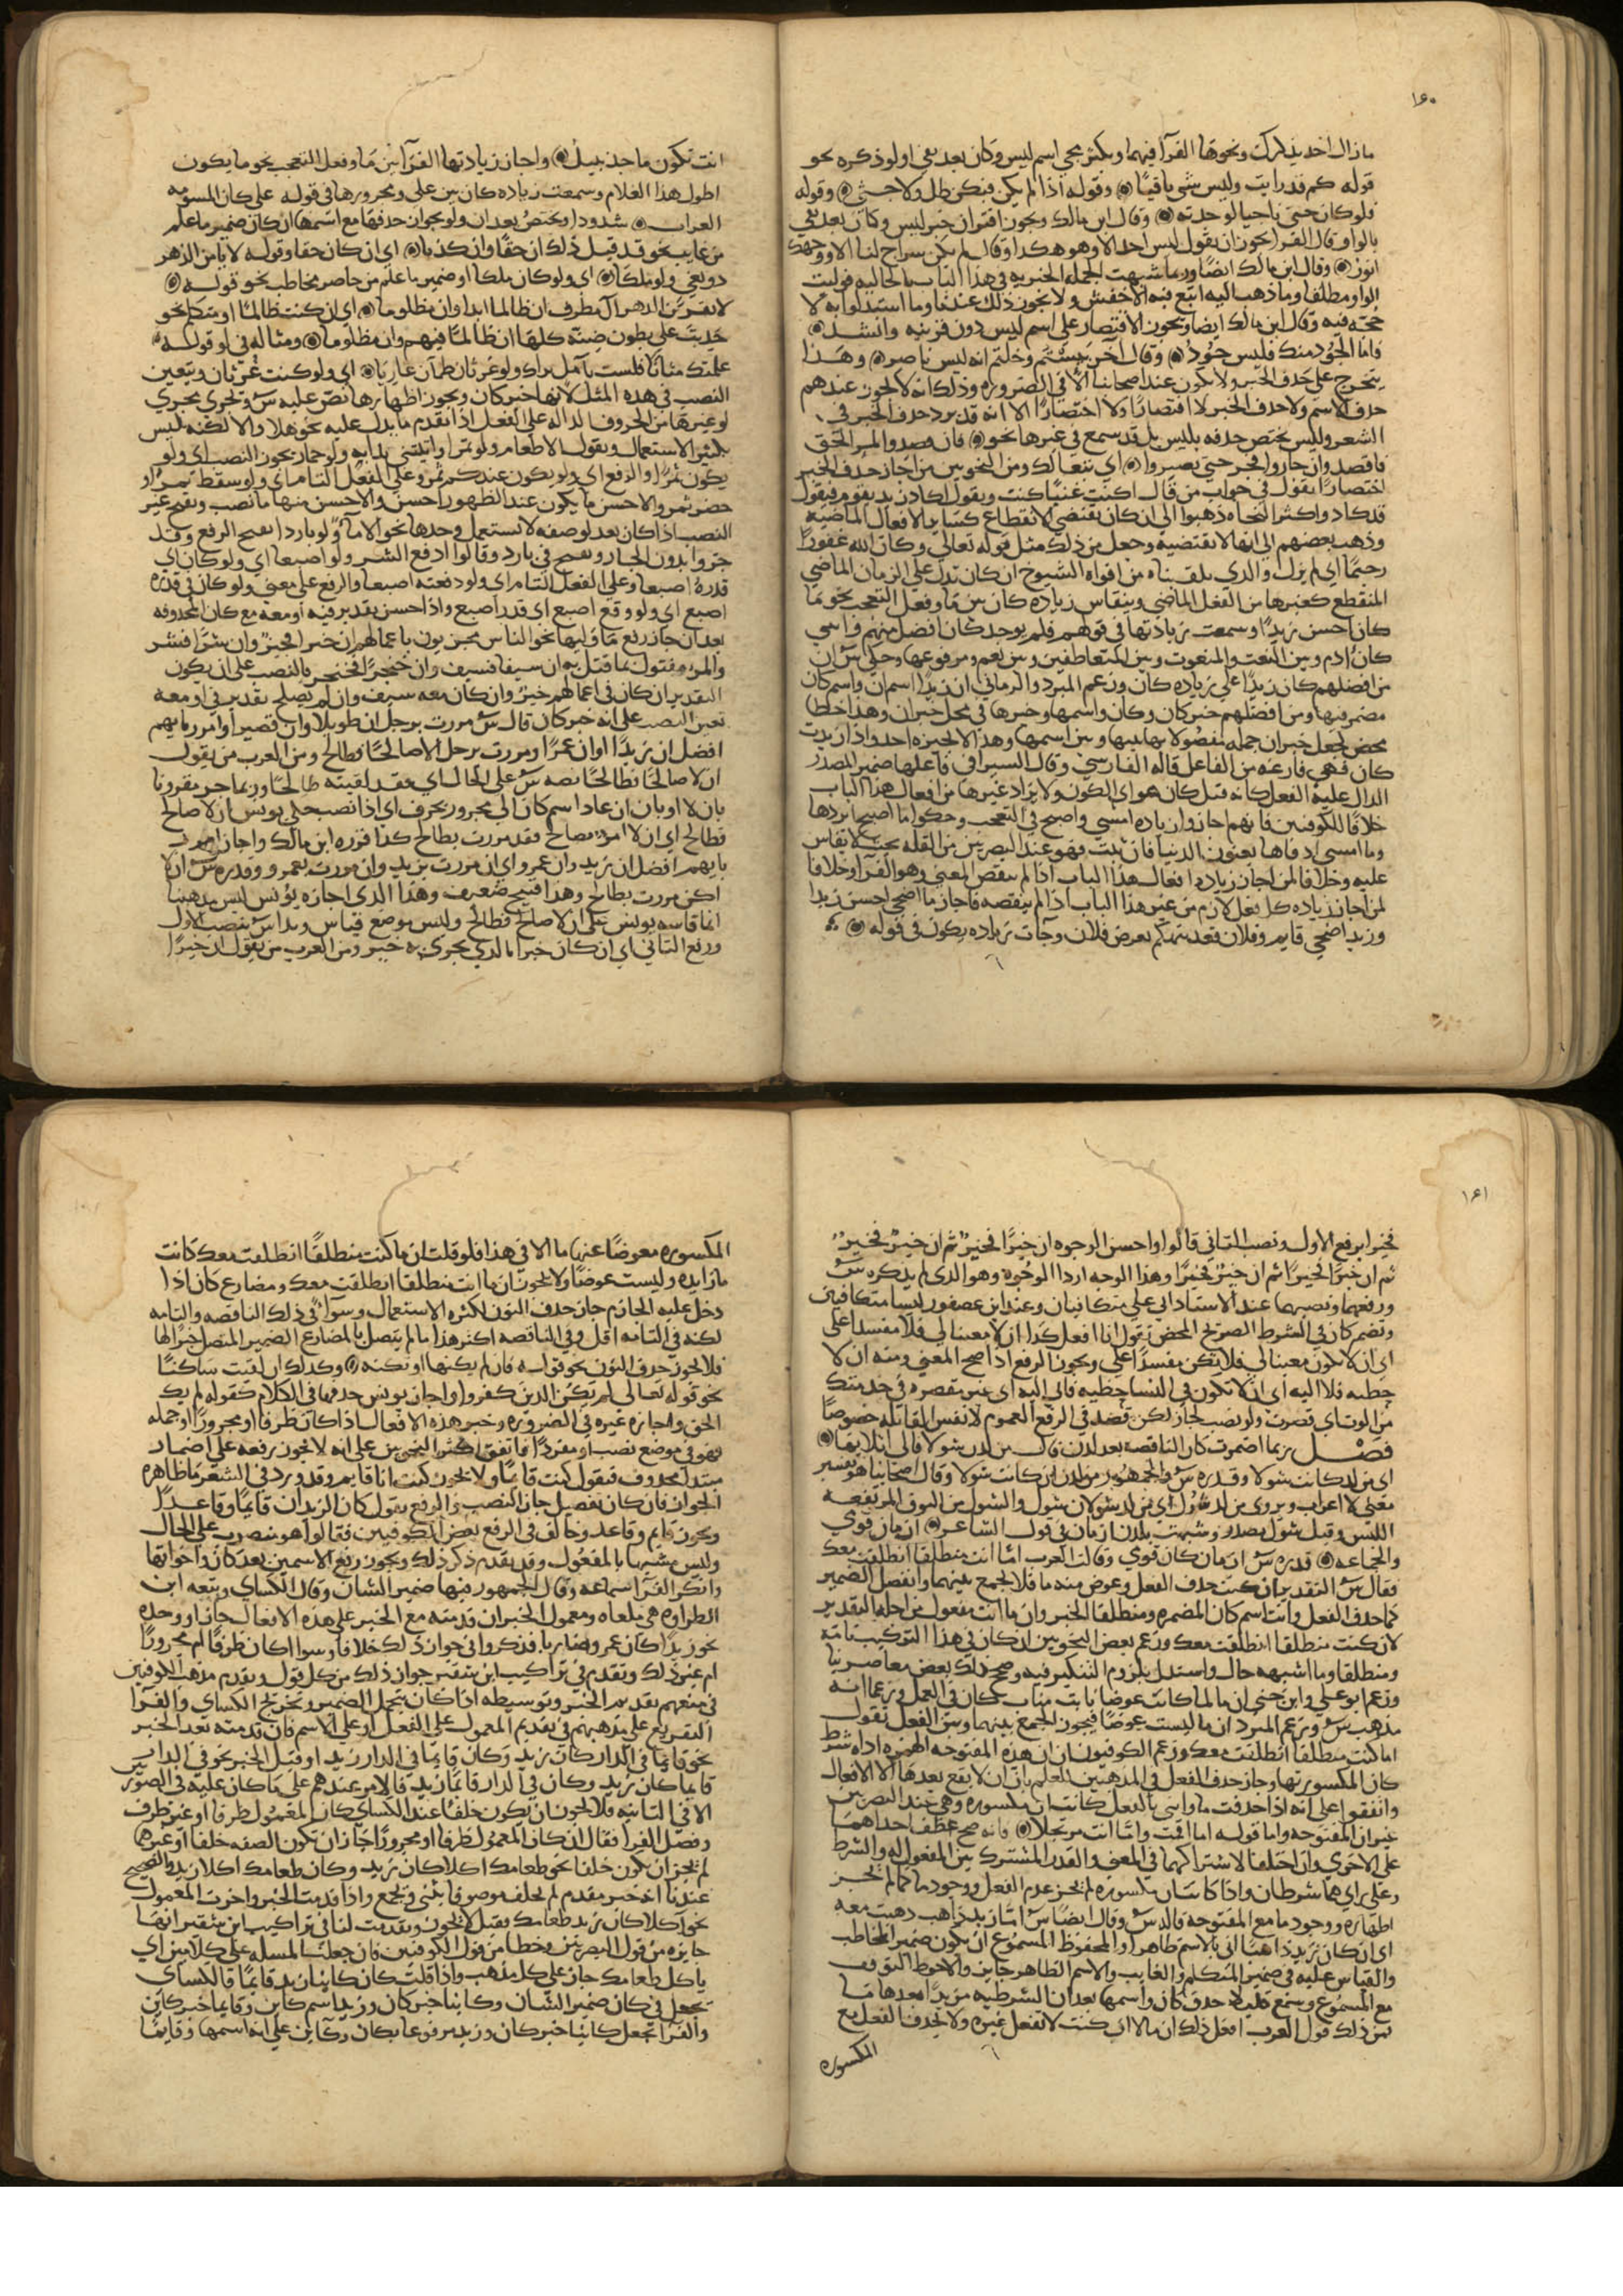 ١٦٠
ما زال اخذ بذكرك ونحوها الفرآ فيهما ويكثر مجي اسم ليس وكان بعد نفي اولو ذكره نحو
قوله كم قد رايت وليس شي باقيا وقوله اذا لم يكن فيكن ظل ولا جنى وقوله
فلو كان حي ناجيا لوجدته وقال ابن مالك ويجوز اقتران خبر ليس وكان بعد نفي
بالواو وقال الفرا يجوز ان يقول ليس احد الا وهو هكذا وقال لم يكن سراج لنا الا ووجهك
انور وقال ابن مالك ايضا وربما شبهت الجمله الخبريه في هذا الباب بالحاليه فوليت
الواو مطلقا وما ذهب اليه اتبع فيه الاخفش ولا يجوز ذلك عندنا وما استدلوا به لا
حجه فيه وقال ابن مالك ايضا ويجوز الاقتصار على اسم ليس دون قرينه وانشد
فاما الجود منك فليس جود وقال آخر يئستم وخلتم انه ليس ناصر وهذا
يتخرج على حذف الخبر ولا يكون عند اصحابنا الا في الضروره وذلك انه لا يجوز عندهم
حذف الاسم ولا حذف الخبر لا اقتصارا ولا اختصارا الا انه قد يرد حذف الخبر في
الشعر وليس يختص حذفه بليس بل قد سمع في غيرها نحو فان قصدوا لمر الحق
فاقصد وان جاروا فجر حتى يصيروا اي تبعا لك ومن النحويين من اجاز حذف الخبر
اختصارا يقول في جواب من قال اكنت غنيا كنت ويقول اكاد زيد يقوم فيقول
قد كاد واكثر النحاه ذهبوا الى ان كان يقتضي الانقطاع كساير الافعال الماضيه
وذهب بعضهم الى انها لا تقتضيه وجعل من ذلك مثل قوله تعالى وكان الله غفورا
رحيما اي لم يزل والذي تلقيناه من افواه الشيوخ ان كان تدل على الزمان الماضي
المنقطع كغيرها من الفعل الماضي وينقاس زياده كان بين ما وفعل التعجب نحو ما
كان احسن زيدا وسمعت زيادتها في قولهم فلم يوجد كان افضل منهم وابي
كان ادم وبين النعت والمنعوت وبين المتعاطفين وبين نعم ومرفوعها وحكى س ان
من افضلهم كان زيدا على زياده كان وزعم المبرد والرماني ان زيدا اسم ان واسم كان
مضمر فيها ومن افضلهم خبر كان وكان واسمها وخبرها في محل خبر ان وهذا خلط
محض لجعل خبر ان جمله مفصولا بها بينها وبين اسمها وهذا لا يجيزه احد واذا زيدت
كان فهي فارغه من الفاعل قاله الفارسي وقال السيرافي فاعلها ضمير المصدر
الدال عليه الفعل كانه قيل كان هو اي الكون ولا يزاد غيرها من افعال هذا الباب
خلافا للكوفيين فانهم اجازوا زياده امسى واصبح في التعجب وحكوا ما اصبح ابردها
وما امسى ادفاها يعنون الدنيا فان ثبت فهو عند البصريين من القله بحيث لا يقاس
عليه وخلافا لمن اجاز زياده افعال هذا الباب اذا لم ينقص المعنى وهو الفرآ وخلافا
لمن اجاز زياده كل فعل لازم من غير هذا الباب اذا لم ينقصه فاجاز ما اضحى احسن زيدا
وزيد اضحى قايم وفلان قعد يتهكم بعرض فلان وجآت زياده يكون في قوله
انت تكون ماجد نبيل واجاز زيادتها الفرآ بين ما وفعل التعجب نحو ما يكون
اطول هذا الغلام وسمعت زياده كان بين على ومجرورها في قوله على كان المسومه
العراب شذوذا ويختص بعد ان ولو بجواز حذفها مع اسمها ان كان ضمير ما علم
من غايب نحو قد قيل ذلك ان حقا وان كذبا اي ان كان حقا وقوله لا يامن الدهر
ذو بغي ولو ملكا اي ولو كان ملكا او ضمير ما علم من حاضر مخاطب نحو قوله
لا تقربن الدهر آل مطرف ان ظالما ابدا وان مظلوما اي ان كنت ظالما او متكلم نحو
حدبت علي بطون ضنة كلها ان ظالما فيهم وان مظلوما ومثاله في لو قوله
علمتك منانا فلست بآمل نداك ولو غرثان ظمآن عاريا اي ولو كنت غرثان ويتعين
النصب في هذه المثل لانها خبر كان ويجوز اظهارها نص عليه س وتجري مجرى
لو غيرها من الحروف الداله على الفعل اذا تقدم ما يدل عليه نحو هلا والا لكنه ليس
بكثير الاستعمال ويقول الا طعام ولو تمرا وايتني بدابه ولو حمار يجوز النصب اي ولو
يكون تمرا والرفع اي ولو يكون عندكم تمر وعلى الفعل التام اي ولو سقط تمر او
حضر تمر والاحسن ما يكون عند الظهور احسن والاحسن منها ما نصب ويقبح غير
النصب اذا كان بعد لو صفه لا تستعمل وحدها نحو الا مآ ولو باردا يقبح الرفع وقد
قدره اصبعا وعلى الفعل التام اي ولو دفعته اصبعا والرفع على معنى ولو كان في قدره
اصبع اي ولو وقع اصبع اي قدر اصبع واذا حسن تقدير فيه او معه مع كان المحذوفه
بعد ان جاز رفع ما وليها نحو الناس مجزيون باعمالهم ان خيرا فخير وان شرا فشر
والمرء مقتول بما قتل به ان سيفا فسيف وان خنجرا فخنجر بالنصب على ان يكون
التقدير ان كان في اعمالهم خير وان كان معه سيف وان لم يصلح تقدير في او معه
تعين النصب على انه خبر كان قال س مررت برجل ان طويلا وان قصيرا وامرر بايهم
افضل ان زيدا او ان عمرا ومررت برجل الا صالحا فطالح ومن العرب من يقول
ان لا صالحا فطالحا نصبه س على الحال اي فقد لقيته طالحا وربما جر مقرونا
بان لا او بان ان عاد اسم كان الى مجرور بحرف اي اذا نصب حكى يونس ان لا صالح
فطالح اي ان لا امرر بصالح فقد مررت بطالح كذا قرره ابن مالك واجاز امرر
بايهم افضل ان زيد وان عمرو اي ان مررت بزيد وان مررت بعمرو وقدره س ان لا
اكن مررت بطالح وهذا قبيح ضعيف وهذا الذي اجازه يونس ليس مذهبنا
انما قاسه يونس على ان لا صالح فطالح وليس موضع قياس وبدا س بنصب الاول
ورفع الثاني اي ان كان خيرا فالذي يجزى به خير ومن العرب من يقول ان خيرا
١٦١
فخيرا برفع الاول ونصب الثاني قالوا واحسن الوجوه ان خيرا فخير ثم ان خير فخير
ثم ان خيرا فخيرا ثم ان خير فخيرا وهذا الوجه اردا الوجوه وهو الذي لم يذكره س
ورفعهما ونصبهما عند الاستاد ابي علي متكافيان وعند ابن عصفور ليسا متكافيين
وتضمر كان في الشرط الصريح المحض يقول انا افعل كذا ان لا معينا لي فلا مفسدا علي
اي ان لا تكون معينا لي فلا تكن مفسدا علي ويجوز الرفع اذا صح المعنى ومنه ان لا
حظيه فلا اليه اي ان لا تكون في النسا حظيه فاني اليه اي غير مقصره في خدمتك
فصل ربما اضمرت كان الناقصه بعد لدن قال من لد شولا فالى اتلايها
اي من لد كانت شولا وقدره س والجمهور من لدن ان كانت شولا وقال اصحابنا هو تفسير
معنى لا اعراب ويروى من لد شول اي من لد شولان شول والشول من النوق المرتفعه
اللبن وقيل شول مصدر وشبهت بلدن ازمان في قول الشاعر ازمان قومي
والجماعه قدره س ازمان كان قومي وقالت العرب اما انت منطلقا انطلقت معك
فقال س التقدير ان كنت حذف الفعل وعوض منه ما فلا يجمع بينهما وانفصل الضمير
لما حذف الفعل وانت اسم كان المضمره ومنطلقا الخبر وان ما انت مفعول من اجله التقدير
لان كنت منطلقا انطلقت معك وزعم بعض النحويين ان كان في هذا التركيب تامه
ومنطلقا وما اشبهه حال واستدل بلزوم التنكير فيه وصحح ذلك بعض معاصرينا
وزعم ابو علي وابن جني ان ما لما كانت عوضا نابت مناب كان في العمل وزعما انه
مذهب س وزعم المبرد ان ما ليست عوضا فيجوز الجمع بينهما وبين الفعل تقول
اما كنت منطلقا انطلقت معك وزعم الكوفيون ان ان هذه المفتوحه الهمزه اداه شرط
كان المكسورتها وجاز حذف الفعل في المذهبين للعلم بان ان لا يقع بعدها الا الافعال
واتفقوا على انه اذا حذفت ما واتي بالفعل كانت ان مكسوره وهي عند البصريين
غير ان المفتوحه واما قوله اما اقمت واما انت مرتحلا فانه صح عطف احداهما
على الاخرى وان اختلفا لاشتراكهما في المعنى والقدر المشترك بين المفعول له والشرط
وعلى راي هما شرطان واذا كانت ان مكسوره لم يجز عدم الفعل ووجود ما كما لم يجز
اظهاره ووجود ما مع المفتوحه قاله س وقال ايضا س اما زيد ذاهب ذهبت معه
اي ان كان زيد ذاهبا اتى بالاسم ظاهرا والمحفوظ المسموع ان يكون ضمير المخاطب
والقياس عليه في ضمير المتكلم والغايب والاسم الظاهر جايز والاحوط التوقف
مع المسموع وسمع قليلا حذف كان واسمها بعد ان الشرطيه مزيدا بعدها ما
فمن ذلك قول العرب افعل ذلك ان ما لا اي كنت لا تفعل غيره ولا يحذف الفعل مع
المكسوره
المكسوره معوضا عنها ما الا في هذا فلو قلت ان ما كنت منطلقا انطلقت معك كانت
ما زايده وليست عوضا ولا يجوز ان ما انت منطلقا انطلقت معك ومضارع كان اذا
دخل عليه الجازم جاز حذف النون لكثره الاستعمال وسوآ في ذلك الناقصه والتامه
لكنه في التامه اقل وفي الناقصه اكثر هذا ما لم يتصل بالمضارع الضمير المتصل خبرا لها
فلا يجوز حذف النون نحو قوله فان لم يكنها او تكنه وكذلك ان لقيت ساكنا
نحو قوله تعالى لم يكن الذين كفروا واجاز يونس حذفها في الكلام كقوله لم يك
الحق واجازه غيره في الضروره وخبر هذه الافعال اذا كان ظرفا او مجرورا او جمله
فهو في موضع نصب او مفردا فاتفق اكثر النحويين على انه لا يجوز رفعه على اضمار
مبتدا محذوف فيقول كنت قايما ولا يجوز كنت انا قايم وقد ورد في الشعر ما ظاهره
الجواز فان كان تفصيل جاز النصب والرفع يقول كان الزيدان قايما وقاعدا
ويجوز قايم وقاعد وخالف في الرفع بعض الكوفيين فقالوا هو منصوب على الحال
وليس مشبها بالمفعول وقد تقدم ذكر ذلك ويجوز رفع الاسمين بعد كان واخواتها
وانكر الفرآ سماعه وقال الجمهور فيها ضمير الشان وقال الكساي وتبعه ابن
الطراوه هي ملغاه ومعمول الخبر ان قدمته مع الخبر على هذه الافعال جاز او وحده
نحو زيدا كان عمرو ضاربا فذكروا في جواز ذلك خلافا وسوا اكان ظرفا ام مجرورا
ام غير ذلك وتقدم في تراكيب ابن شقير جواز ذلك من كل قول وتقدم مذهب الكوفيين
في منعهم تقديم الخبر وتوسيطه اذا كان يتحمل الضمير وتخريج الكساي والفرآ
التفريع على مذهبهم في تقديم المعمول على الفعل او على الاسم فان قدمته بعد الخبر
نحو قايما في الدار كان زيد وكان قايما في الدار زيد او قبل الخبر نحو في الدار
قايما كان زيد وكان في الدار قايما زيد فالامر عندهم على ما كان عليه في الصورتين
الا في الثانيه فلا يجوز ان يكون خلفا عند الكساي كان المعمول ظرفا او غير ظرف
وفصل الفرا فقال ان كان المعمول ظرفا او مجرورا جاز ان تكون الصفه خلفا او غيرهما
لم يجز ان يكون خلفا نحو طعامك اكلا كان زيد وكان طعامك اكلا زيد والصحيح
عندنا انه خبر مقدم لم يخلف موصوفا يثنى ويجمع واذا قدمت الخبر واخرت المعمول
نحو اكلا كان زيد طعامك فقيل لا يجوز وتقدمت لنا في تراكيب ابن شقير انها
جايزه من قول البصريين وخطا من قول الكوفيين فان جعلت المسله على كلامين اي
ياكل طعامك جاز على كل مذهب واذا قلت كان كاينا زيد قايما فالكساي
يجعل في كان ضمير الشان وكاينا خبر كان وزيد اسم كاين وقايما خبر كاين
والفرا يجعل كاينا خبر كان وزيد مرفوعا بكان وكاين على انه اسمها وقايما